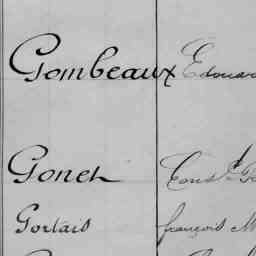 Gombeaux Edouar
Gonet Const
Gortais françois M